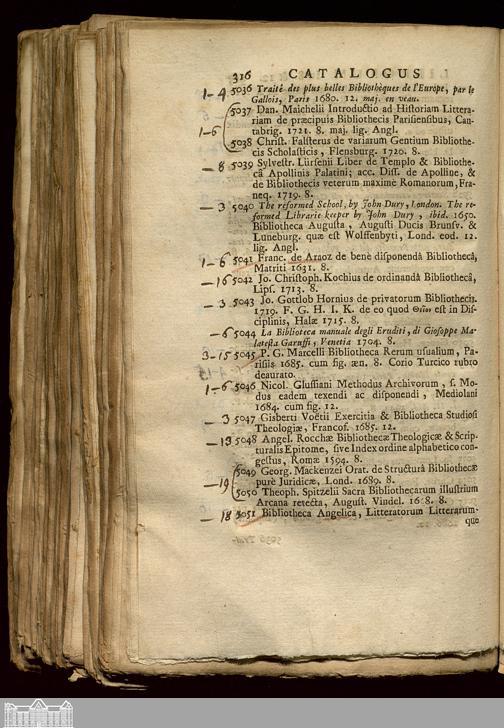 316 CATALOGUS
1-4 5036 Traité des plus belles Bibliothèques de l'Europe, par le
Gallois, Paris 1680. 12. maj. en veau.
5037 Dan. Maichelii Introductio ad Historiam Littera-
riam de præcipuis Bibliothecis Parisiensibus, Can-
1-6 tabrig. 1721. 8. maj. lig. Angl.
5038 Christ. Falsterus de variarum Gentium Bibliothe-
cis Scholasticis, Flensburg. 1720. 8.
—8 5039 Sylvestr. Lürsenii Liber de Templo & Bibliothe-
câ Apollinis Palatini; acc. Diss. de Apolline, &
de Bibliothecis veterum maximè Romanorum, Fra-
neq. 1719. 8.
—3 5040 The reformed School, by John Dury, London. The re-
formed Librarie keeper by John Dury, ibid. 1650.
Bibliotheca Augusta, Augusti Ducis Brunsv. &
Luneburg. quæ est Wolffenbyti, Lond. eod. 12.
lig. Angl.
1-6 5041 Franc. de Araoz de benè disponendâ Bibliothecâ,
Matriti 1631. 8.
—16 5042 Jo. Christoph. Kochius de ordinandâ Bibliothecâ,
Lips. 1713. 8.
—3 5043 Jo. Gottlob Hornius de privatorum Bibliothecis.
1719. F. G. H. I. K. de eo quod Θεῖον est in Dis-
ciplinis, Halæ 1715. 8.
—6 5044 La Biblioteca manuale degli Eruditi, di Gioseppe Ma-
latesta Garuffi, Venetia 1704. 8.
3-15 5045 P. G. Marcelli Bibliotheca Rerum usualium, Pa-
risiis 1685. cum fig. æn. 8. Corio Turcico rubro
deaurato.
1-6 5046 Nicol. Giussiani Methodus Archivorum, s. Mo-
dus eadem texendi ac disponendi, Mediolani
1684. cum fig. 12.
—3 5047 Gisberti Voetii Exercitia & Bibliotheca Studiosi
Theologiæ, Francof. 1685. 12.
—13 5048 Angel. Rocchæ Bibliothecæ Theologicæ & Scrip-
turalis Epitome, sive Index ordine alphabetico con-
gestus, Romæ 1594. 8.
5049 Georg. Mackenzei Orat. de Structurâ Bibliothecæ
—19 purè Juridicæ, Lond. 1689. 8.
5050 Theoph. Spitzelii Sacra Bibliothecarum illustrium
Arcana retecta, August. Vindel. 1668. 8.
—18 5051 Bibliotheca Angelica, Litteratorum Litterarum-
que